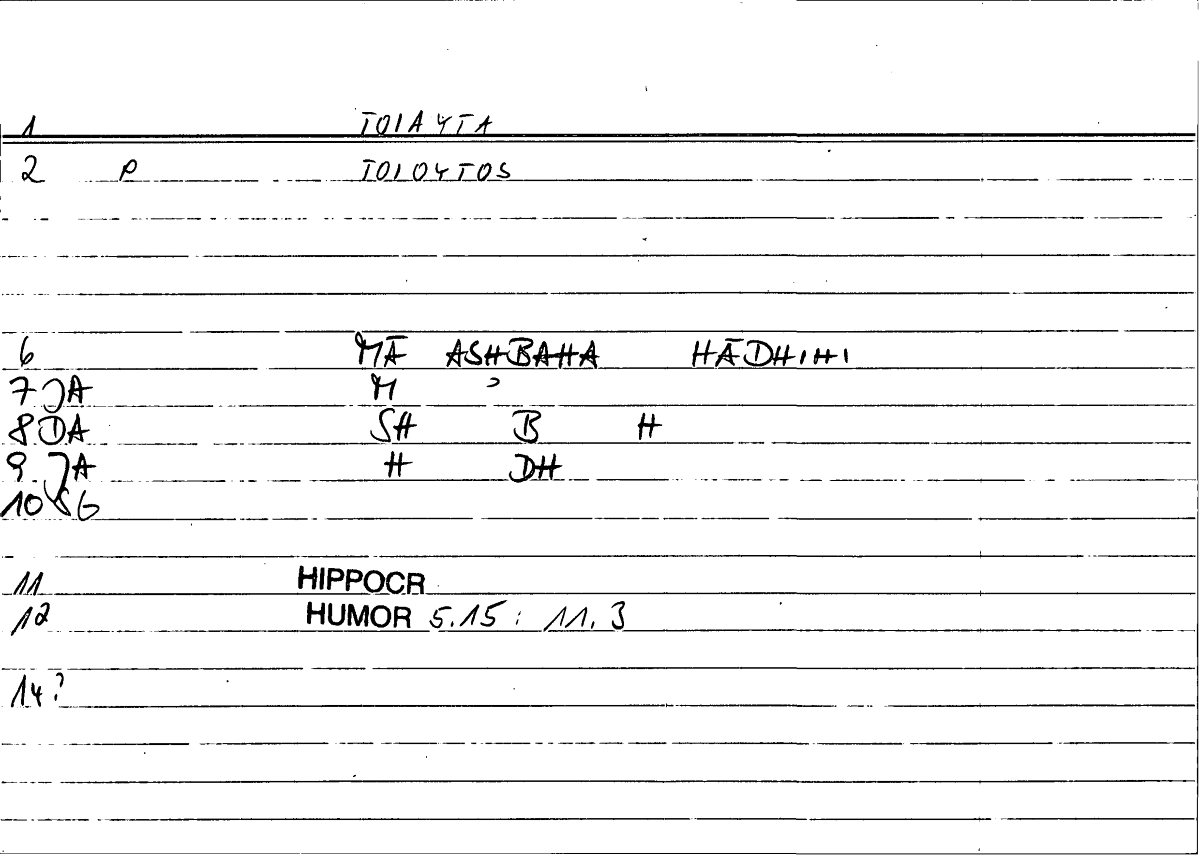 1 TOIAYTA
2 P TOIOYTOS
6 MĀ ASHBAHA HĀDHIHI
7 JA M ʾ
8 DA SH B H
9 JA H DH
10 SG
11 HIPPOCR
12 HUMOR 5.15 : 11.3
14?